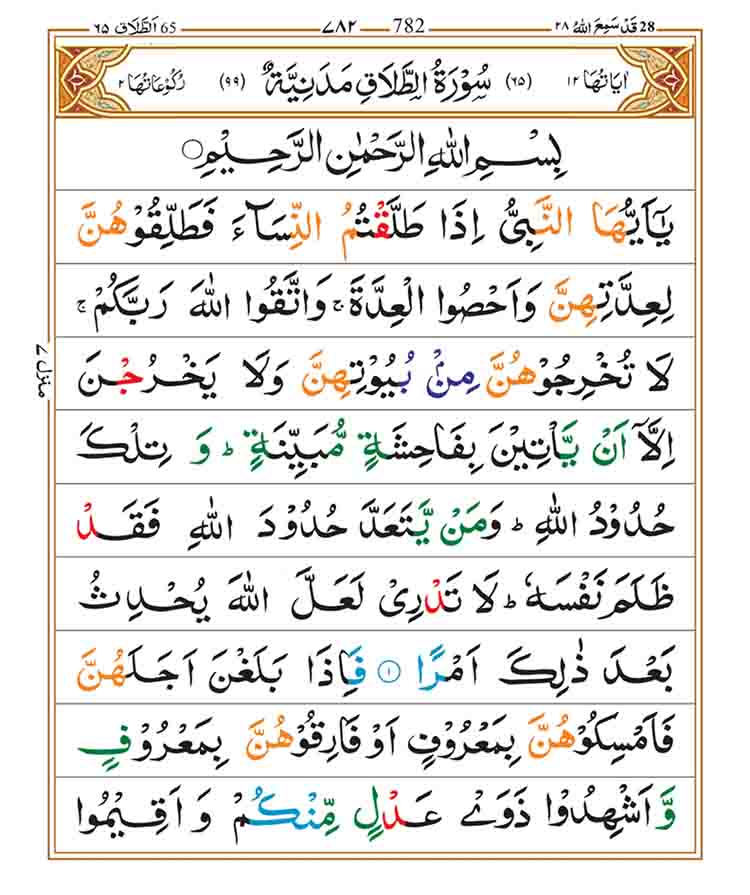 28 قَدْ سَمِعَ اللهُ ۲۸ 782 ۷۸۲ 65 اَلطَّلَاق ۶۵
اٰيَاتُهَا ۱۲ (۶۵) سُوْرَةُ الطَّلَاقِ مَدَنِيَّةٌ (۹۹) رُكُوْعَاتُهَا ۲
بِسْمِ اللهِ الرَّحْمٰنِ الرَّحِيْمِ ○
يٰۤاَيُّهَا النَّبِىُّ اِذَا طَلَّقْتُمُ النِّسَآءَ فَطَلِّقُوْهُنَّ
لِعِدَّتِهِنَّ وَاَحْصُوا الْعِدَّةَ ۚ وَاتَّقُوا اللهَ رَبَّكُمْ ۚ
لَا تُخْرِجُوْهُنَّ مِنْۢ بُيُوْتِهِنَّ وَلَا يَخْرُجْنَ
اِلَّاۤ اَنْ يَّاْتِيْنَ بِفَاحِشَةٍ مُّبَيِّنَةٍ ؕ وَ تِلْكَ
حُدُوْدُ اللهِ ؕ وَمَنْ يَّتَعَدَّ حُدُوْدَ اللهِ فَقَدْ
ظَلَمَ نَفْسَهٗ ؕ لَا تَدْرِىْ لَعَلَّ اللهَ يُحْدِثُ
بَعْدَ ذٰلِكَ اَمْرًا ۝۱ فَاِذَا بَلَغْنَ اَجَلَهُنَّ
فَاَمْسِكُوْهُنَّ بِمَعْرُوْفٍ اَوْ فَارِقُوْهُنَّ بِمَعْرُوْفٍ
وَّ اَشْهِدُوْا ذَوَىْ عَدْلٍ مِّنْكُمْ وَ اَقِيْمُوا
منزل ۷